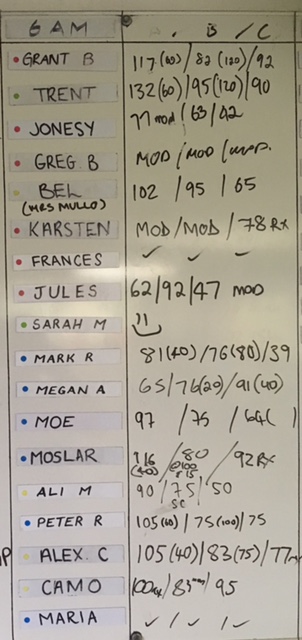 6AM A / B / C
GRANT B 117(60)/82(120)/92
TRENT 132(60)/95(120)/90
JONESY 77 mod / 63 / 42
GREG. B MOD / MOD /
BEL 102 / 95 / 65
(MRS MULLO)
KARSTEN MOD / MOD / 78 RX
FRANCES ✓ ✓ ✓
JULES 62/92/47 MOD
SARAH M
MARK R 81(40)/76(80)/39
MEGAN A 65/76(20)/91(40)
MOE 97 / 75 / 64( )
MOSLAR 116 / 80 / 92 RX
(40) @100
ALI M 90 / 75 / 50
SC
PETER R 105(60)/75(100)/75
P ALEX. C 105(40)/83(75)/77
CAMO 100 / 85 / 95
MARIA ✓ / ✓ / ✓